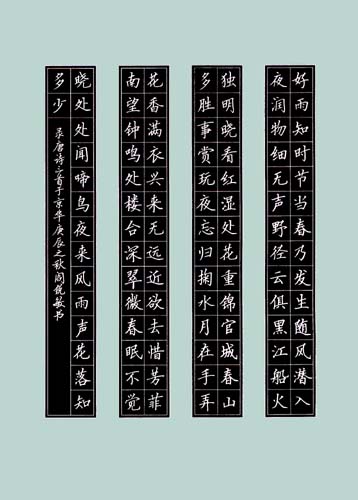 好雨知时节当春乃发生随风潜入
夜润物细无声野径云俱黑江船火
独明晓看红湿处花重锦官城春山
多胜事赏玩夜忘归掬水月在手弄
花香满衣兴来无远近欲去惜芳菲
南望钟鸣处楼台深翠微春眠不觉
晓处处闻啼鸟夜来风雨声花落知
多少
录唐诗三首于京华庚辰之秋阎锐敏书